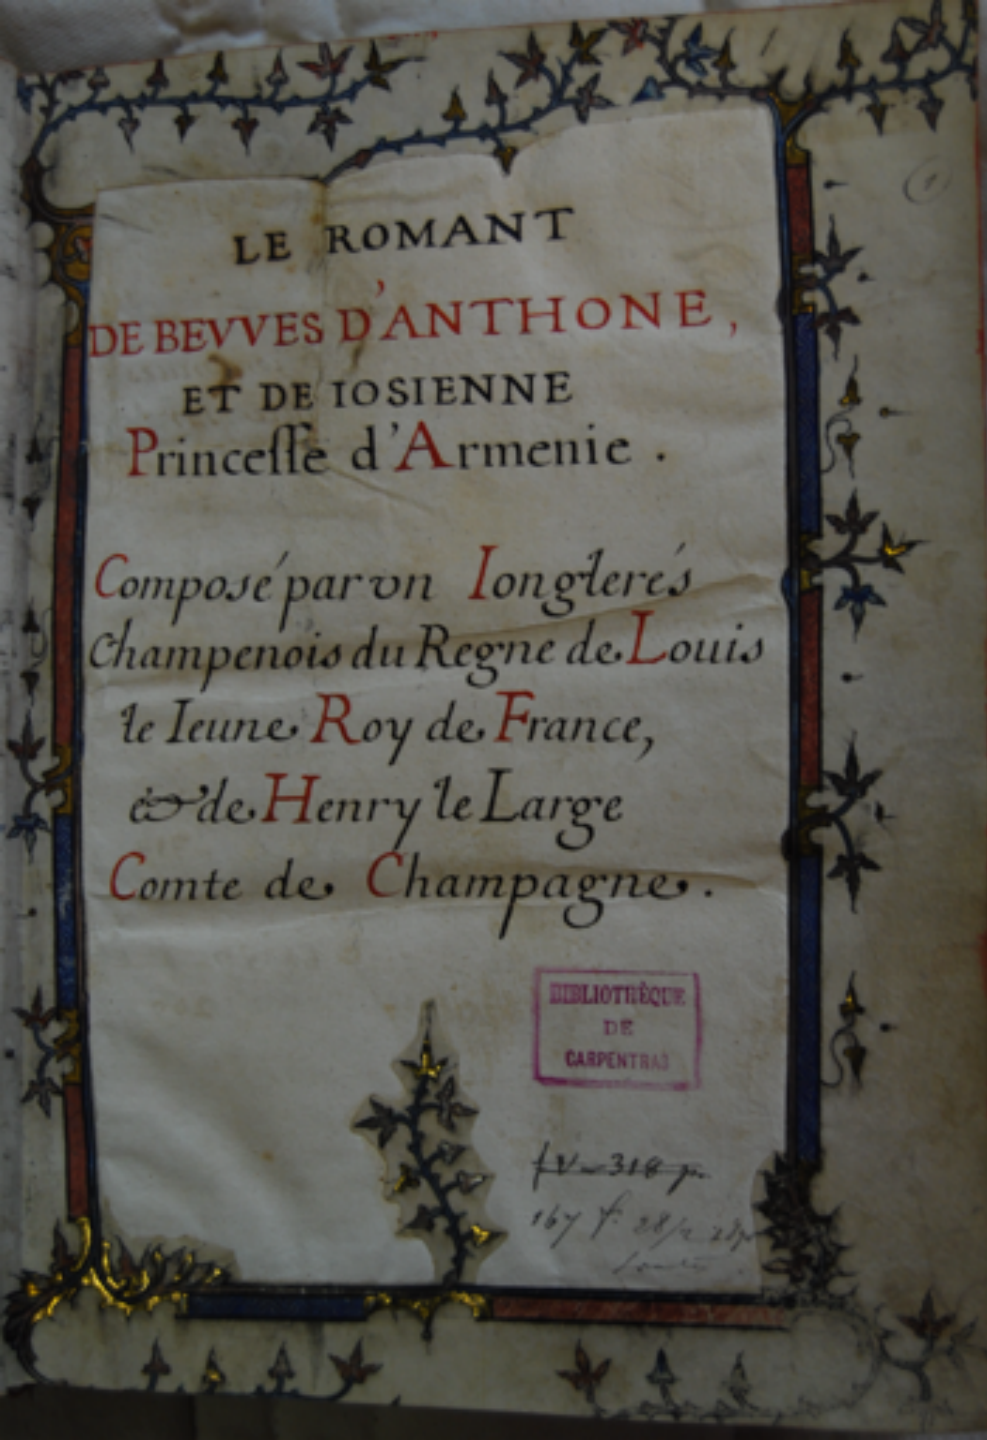 LE ROMANT
DE BEVVES D'ANTHONE,
ET DE IOSIENNE
Princesse d'Armenie.
Composé par vn Iongleres
Champenois du Regne de Louis
le Ieune Roy de France,
& de Henry le Large
Comte de Champagne.
BIBLIOTHÈQUE
DE
CARPENTRAS
318 p.
167 f. 28/